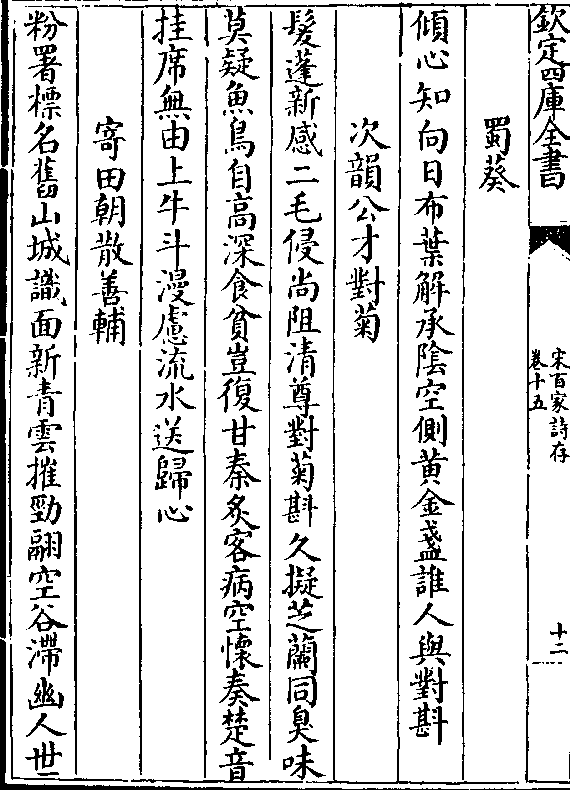 欽定四庫全書
宋百家詩存
卷十五
十二
蜀葵
傾心知向日布葉解承陰空側黄金盞誰人與對斟
次韻公才對菊
髮蓬新感二毛侵尚阻清尊對菊斟久擬芝蘭同臭味
莫疑魚鳥自高深食貧豈復甘秦炙客病空懐奏楚音
挂席無由上牛斗漫慮流水送歸心
寄田朝散善輔
粉署標名舊山城識面新青雲摧勁翮空谷滯幽人世